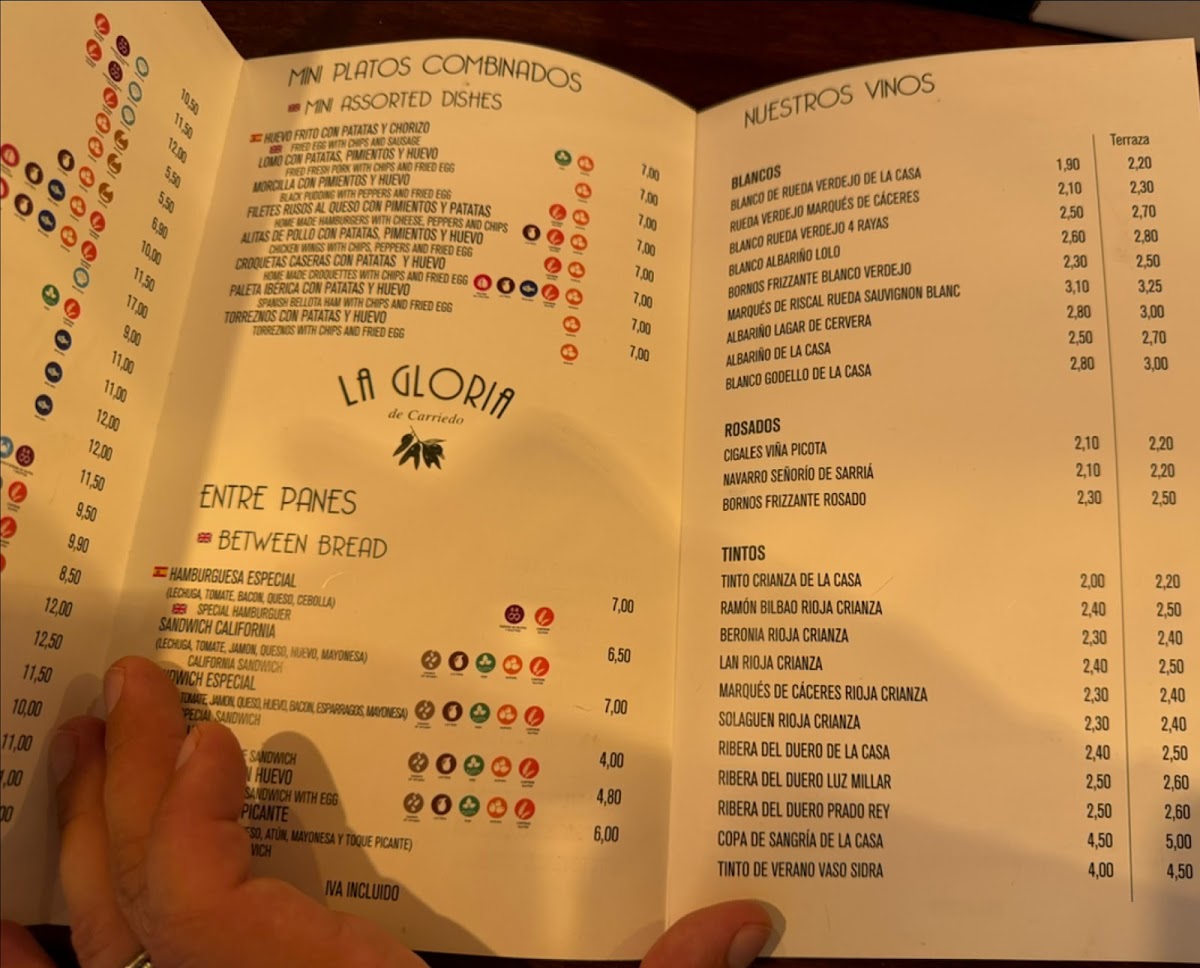 10,50
11,50
12,00
5,50
5,50
6,90
10,00
11,50
17,00
9,00
11,00
11,00
12,00
12,00
11,50
9,50
9,90
8,50
12,00
12,50
11,50
10,00
11,00
MINI PLATOS COMBINADOS
MINI ASSORTED DISHES
HUEVO FRITO CON PATATAS Y CHORIZO
FRIED EGG WITH CHIPS AND SAUSAGE 7,00
LOMO CON PATATAS, PIMIENTOS Y HUEVO
FRIED FRESH PORK WITH CHIPS AND FRIED EGG 7,00
MORCILLA CON PIMIENTOS Y HUEVO
BLACK PUDDING WITH PEPPERS AND FRIED EGG 7,00
FILETES RUSOS AL QUESO CON PIMIENTOS Y PATATAS
HOME MADE HAMBURGERS WITH CHEESE, PEPPERS AND CHIPS 7,00
ALITAS DE POLLO CON PATATAS, PIMIENTOS Y HUEVO
CHICKEN WINGS WITH CHIPS, PEPPERS AND FRIED EGG 7,00
CROQUETAS CASERAS CON PATATAS Y HUEVO
HOME MADE CROQUETTES WITH CHIPS AND FRIED EGG 7,00
PALETA IBÉRICA CON PATATAS Y HUEVO
SPANISH BELLOTA HAM WITH CHIPS AND FRIED EGG 7,00
TORREZNOS CON PATATAS Y HUEVO
TORREZNOS WITH CHIPS AND FRIED EGG 7,00
LA GLORIA
de Carriedo
ENTRE PANES
BETWEEN BREAD
HAMBURGUESA ESPECIAL
(LECHUGA, TOMATE, BACON, QUESO, CEBOLLA) 7,00
SPECIAL HAMBURGUER
SANDWICH CALIFORNIA
(LECHUGA, TOMATE, JAMON, QUESO, HUEVO, MAYONESA) 6,50
CALIFORNIA SANDWICH
ESPECIAL
TOMATE, JAMON, QUESO, HUEVO, BACON, ESPARRAGOS, MAYONESA) 7,00
SPECIAL SANDWICH
SANDWICH 4,00
HUEVO
SANDWICH WITH EGG 4,80
PICANTE
ATÚN, MAYONESA Y TOQUE PICANTE) 6,00
IVA INCLUIDO
NUESTROS VINOS
Terraza
BLANCOS
BLANCO DE RUEDA VERDEJO DE LA CASA 1,90 2,20
RUEDA VERDEJO MARQUÉS DE CÁCERES 2,10 2,30
BLANCO RUEDA VERDEJO 4 RAYAS 2,50 2,70
BLANCO ALBARIÑO LOLO 2,60 2,80
BORNOS FRIZZANTE BLANCO VERDEJO 2,30 2,50
MARQUÉS DE RISCAL RUEDA SAUVIGNON BLANC 3,10 3,25
ALBARIÑO LAGAR DE CERVERA 2,80 3,00
ALBARIÑO DE LA CASA 2,50 2,70
BLANCO GODELLO DE LA CASA 2,80 3,00
ROSADOS
CIGALES VIÑA PICOTA 2,10 2,20
NAVARRO SEÑORÍO DE SARRIÁ 2,10 2,20
BORNOS FRIZZANTE ROSADO 2,30 2,50
TINTOS
TINTO CRIANZA DE LA CASA 2,00 2,20
RAMÓN BILBAO RIOJA CRIANZA 2,40 2,50
BERONIA RIOJA CRIANZA 2,30 2,40
LAN RIOJA CRIANZA 2,40 2,50
MARQUÉS DE CÁCERES RIOJA CRIANZA 2,30 2,40
SOLAGUEN RIOJA CRIANZA 2,30 2,40
RIBERA DEL DUERO DE LA CASA 2,40 2,50
RIBERA DEL DUERO LUZ MILLAR 2,50 2,60
RIBERA DEL DUERO PRADO REY 2,50 2,60
COPA DE SANGRÍA DE LA CASA 4,50 5,00
TINTO DE VERANO VASO SIDRA 4,00 4,50